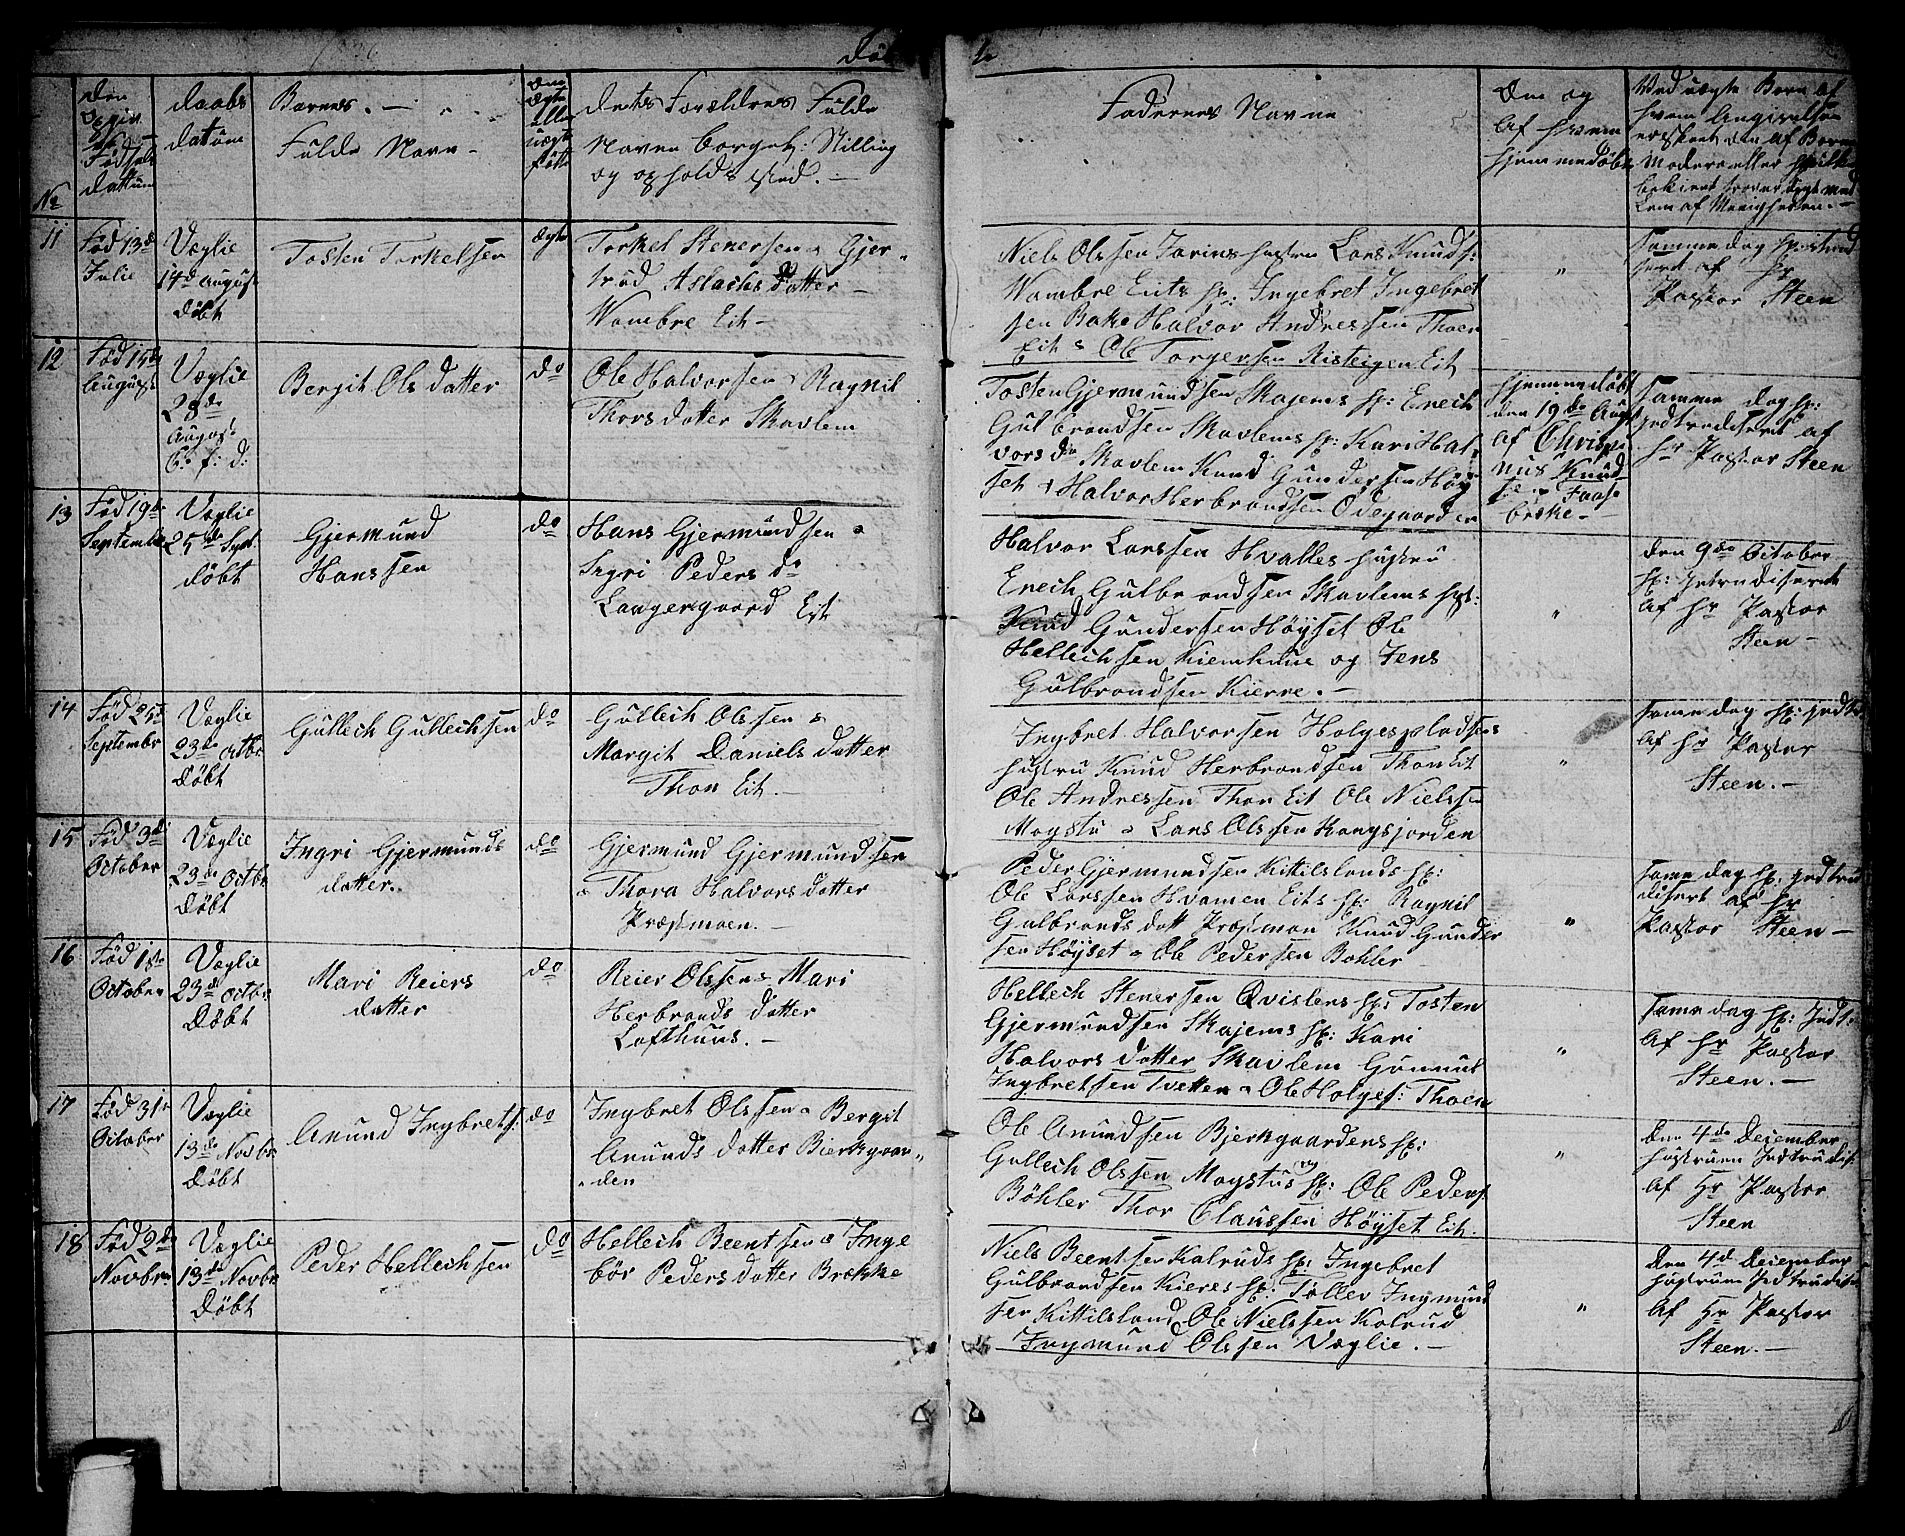 Døbte
No
Den
Fødsels
Dattum
Daabs
Datum
Barnets
Fulde Navn
Den
Ægte
Eller
uægte
født
Dets Forældres Fulde
Navne borgel: Stilling
og opholds Sted.
Faderens Navne
Om og
Af hvem
hjemmedøbt
Ved uægte Børn af
hvem Angivelsen
er skeet
Lem af Menigheden.
11
Fød 13de
Julie
Væglie
14d August
Døbt
Tosten Torkelsen
Ægte
Torkel Stenersen & Gjer-
trud Aslachs datter
Wambre Eit
Niels Olssen hustru Lars Knuds:
Wambre Eits h: Ingebret Ingebret
sen Bake Halvor Andressen Thoen
Eit & Ole Torgersen Risteigen Eit
"
Samme dag
af Hr
Pastor Steen
12
Fød 15de
August
Væglie
28de
August
Bergit Ols datter
do
Ole Halvorsen & Ragnil
Thorsdatter Skavlem
Tosten Gjermundsen Skajems h: Erech
Gulbrandsen Skavlems h: Kari Hal
vors dr Skavlem Knud Gundersen Høy
set & Halvor Herbrandsen Ødegaarden
hjemmedøbt
den 19de Augst
af Chrisp
nus Knud
brøke
Samme dag h:
Jndtrodiseret af
Hr Pastor Steen
13
Fød 19de
September
Væglie
25de Sept.
døbt
Gjermund
Hanssen
do
Hans Gjermundsen &
Ingri Peders dr
Langergaard Eit
Halvor Larssen Hvalles hustru
Erech Gulbrandsen Skavlems hust:
Knud Gundersen Høyset Ole
Hellechsen Kiemhuue og Jens
Gulbrandsen Kierre.
"
Den 9de October
h: Jntrudiseret
af Hr Pastor
Steen
14
Fød 25de
Septembr
Væglie
23de Octbr
Døbt
Gullech Gullechsen
do
Gullech Olssen &
Margit Daniels datter
Thon Eit.
Ingbret Halvorsen Holgespladsens
hustru Knud Herbrandsen Thon Eit
Ole Andressen Thor Eit Ole Nielssen
Mogstu & Lars Olssen Kongsjorden
"
Same dag h: Jndtr
af Hr Pastor
Steen.
15
Fød 3de
October
Væglie
23de Octbr
Døbt
Ingri Gjermunds
datter.
do
Gjermund Gjermundsen
& Thora Halvors datter
Præstmoen.
Peder Gjermundsen Kittilslands h:
Ole Larssen Hvamen Eits h: Ragnil
Gulbrands datt Præstmon Knud Gunder
sen Høyset & Ole Pedersen Bøhler
"
Same dag h: Jndtru
diseret af Hr
Pastor Steen
16
Fød 1ste
October
Væglie
23de Octbr
Døbt
Mari Reiers
datter
do
Reier Olssen & Mari
Herbrands datter
Lofthuus.
Hellech Stenersen Qvislens h: Tosten
Gjermundsen Skajems h: Kari
Halvors datter Skavlem Gunnul
Ingbretsen Tvetten & Ole Holges: Thoen
"
Same dag h: Jndt:
af Hr Pastor
Steen.
17
Fød 31te
October
Væglie
13de Novbr
Døbt
Anund Ingbrets:
do
Ingbret Olssen & Bergit
Anunds datter Bierkgaar-
den
Ole Anundsen Bjerkgaardens h:
Gullech Olssen Mogstus h: og Ole Peders
Bøhler Thor Claussen Høyset Eit.
"
Den 4de December
hustruen Jndtrudis:
af Hr Pastor
Steen
18
Fød 2de
Novbr
Væglie
13de Novbr
Døbt
Peder Hellechsen
do
Hellech Beentsen & Inge
bør Peders datter Brøkke
Niels Beentsen Kalruds h: Ingebret
Gulbrandsen Kieres h: Tollev Ingmund
sen Kittilsland Ole Nielssen Kolrud
Ingmund Olssen Væglie.
"
Den 4d December
hustruen Jndtrudis
af Hr Pastor
Steen.